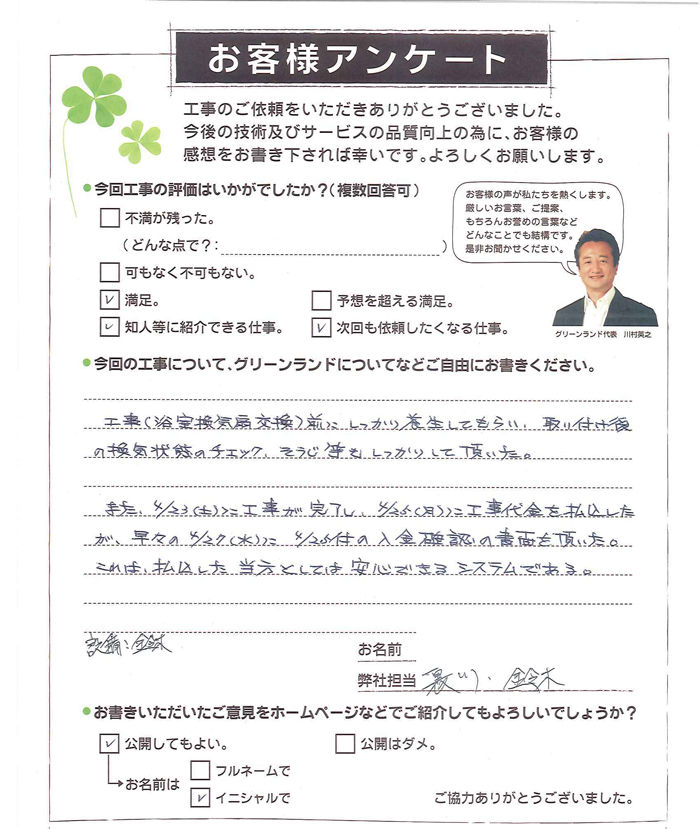 お客様アンケート
工事のご依頼をいただきありがとうございました。
今後の技術及びサービスの品質向上の為に、お客様の
感想をお書き下されば幸いです。よろしくお願いします。
今回工事の評価はいかがでしたか?(複数回答可)
不満が残った。
(どんな点で?: )
可もなく不可もない。
満足。
予想を超える満足。
知人等に紹介できる仕事。
次回も依頼したくなる仕事。
お客様の声が私たちを熱くします。
厳しいお言葉、ご提案、
もちろんお誉めの言葉など
どんなことでも結構です。
是非お聞かせください。
グリーンランド代表 川村英之
今回の工事について、グリーンランドについてなどご自由にお書きください。
工事(浴室換気扇交換)前にしっかり養生してもらい、取り付け後
の換気状態のチェック、そうじ等もしっかりして頂いた。
また、4/23(土)に工事が完了し、4/25(月)に工事代金を払込した
が、早々の4/27(水)に 4/25付の入金確認の書面を頂いた。
これは、払込した当方としては安心できるシステムである。
設備:鈴木
お名前
弊社担当 鈴木
お書きいただいたご意見をホームページなどでご紹介してもよろしいでしょうか?
公開してもよい。
公開はダメ。
お名前は
フルネームで
イニシャルで
ご協力ありがとうございました。